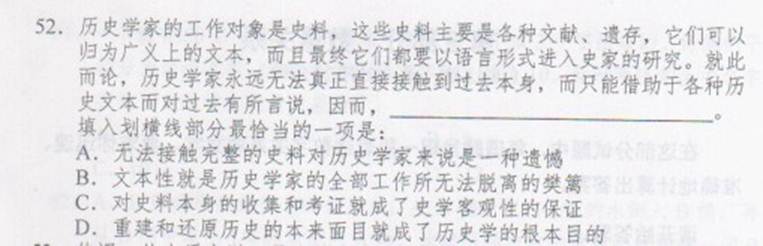 52. 历史学家的工作对象是史料，这些史料主要是各种文献、遗存，它们可以
归为广义上的文本，而且最终它们都要以语言形式进入史家的研究。就此
而论，历史学家永远无法真正直接接触到过去本身，而只能借助于各种历
史文本而对过去有所言说，因而，____________________。
填入划横线部分最恰当的一项是：
A．无法接触完整的史料对历史学家来说是一种遗憾
B．文本性就是历史学家的全部工作所无法脱离的樊篱
C．对史料本身的收集和考证就成了史学客观性的保证
D．重建和还原历史的本来面目就成了历史学的根本目的